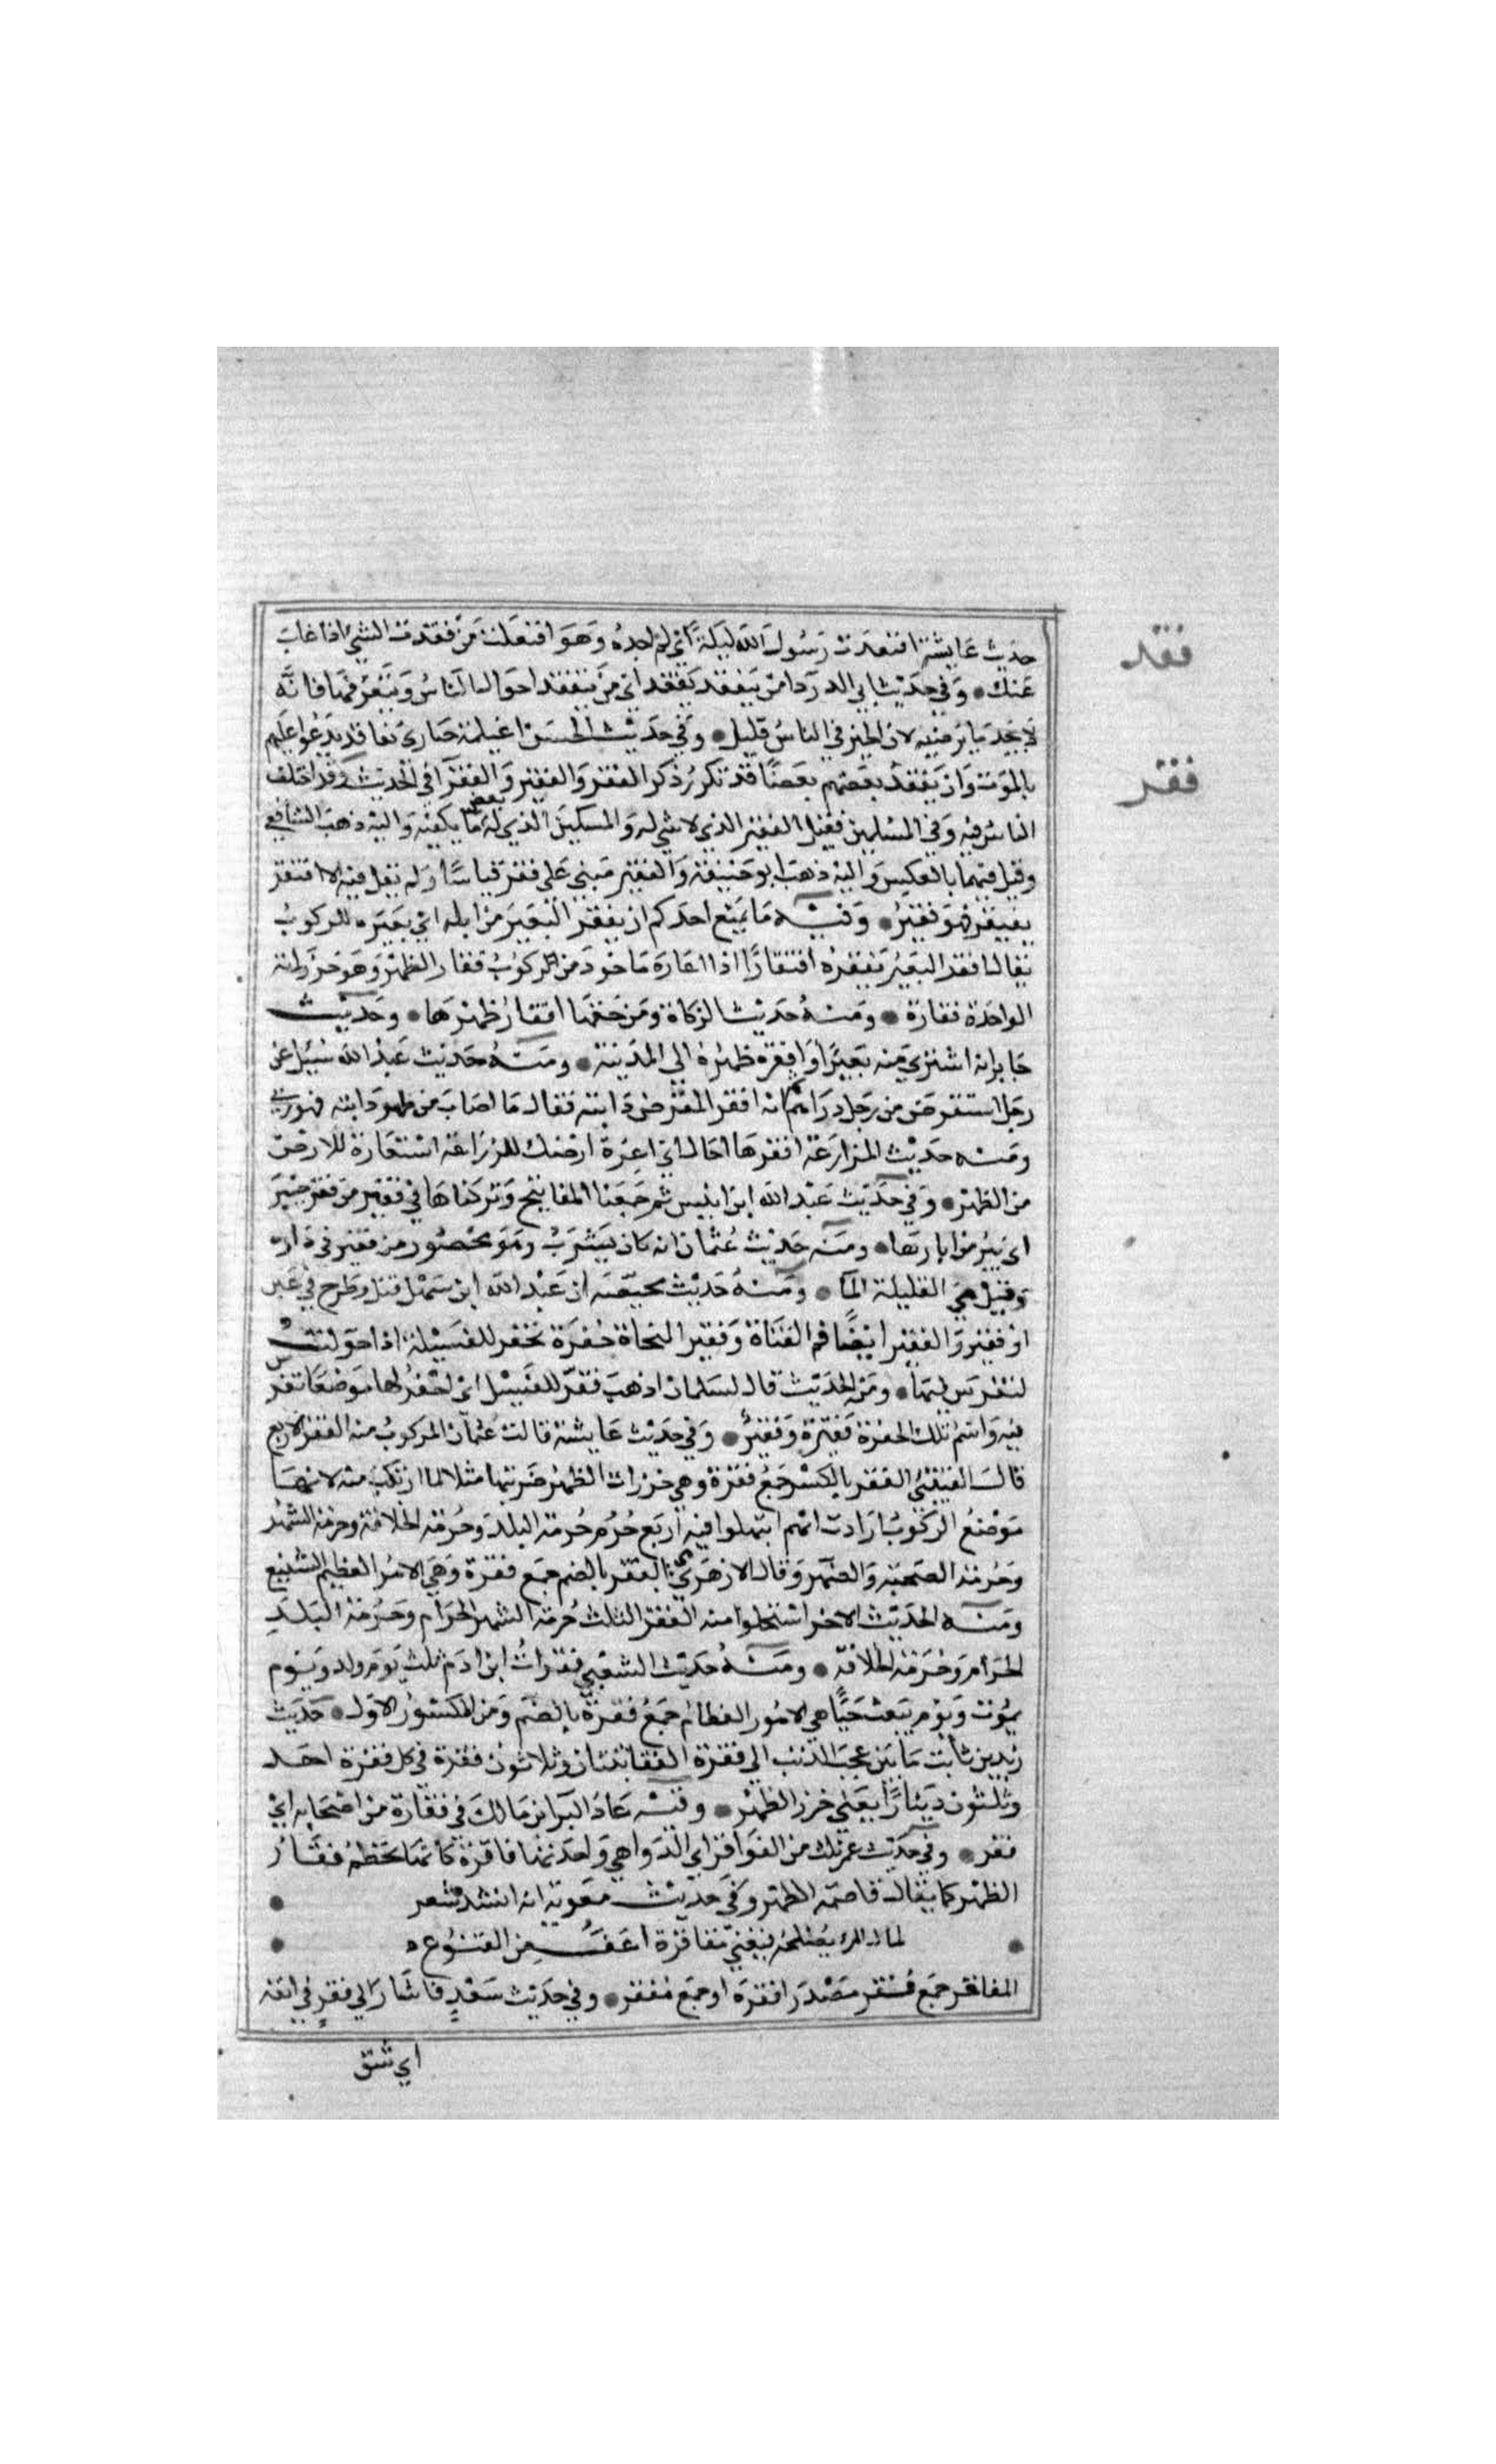 فقد
حديث عايشة افتقدت رسول الله ليلة اي لم اجده وهو افتعلت من فقدت الشي اذا غاب
عنك • وفي حديث ابي الدردا من يتفقد يفقد اي من يتفقد احوال الناس ويتعرفها فانه
لا يجد ما يرضيه لان الخير في الناس قليل • وفي حديث الحسن اغيلمة حيارى تفاقدوا يدعوا عليهم
فقر
بالموت وان يفقد بعضهم بعضا قد تكرر ذكر الفقر والفقير والفقرآ في الحديث وقد اختلف
الناس فيه وفي المسلمين فقيل الفقير الذي لا شي له والمسكين الذي له بعض ما يكفيه واليه ذهب الشافعي
وقيل فيهما بالعكس واليه ذهب ابو حنيفة والفقير مبني على فقر قياسا ولم يقل فيه الا افتقر
يفتقر فهو فقير • وفيه ما يمنع احدكم ان يفقر البعير من ابله اي يعيره للركوب
يقال افقر البعير يفقره افقارا اذا اعاره ماخوذ من الركوب فقار الظهر وهو خرزاته
الواحدة فقارة • ومنه حديث الزكاة ومن حقها افقار ظهرها • وحديث
جابر انه اشترى منه بعيرا وافقره ظهره الي المدينة • ومنه حديث عبد الله سيل عن
رجل استقرض من رجل دراهم ثم انه افقر المقرض دابته فقال ما اصاب من ظهر دابته فهو ربي
ومنه حديث المزارعة افقرها اخاك اي اعره ارضك للزراعة استعارة للارض
من الظهر • وفي حديث عبد الله ابن انيس ثم جمعنا المفاتيح وتركناها في فقير من فقر خيبر
اي بير من ابارها • ومنه حديث عثمان انه كان يشرب وهو محصور من فقير في داره
وقيل هي القليلة المآ • ومنه حديث محيصة ان عبد الله ابن سهل قتل وطرح في عين
او فقير والفقير ايضا فم القناة وفقير النخلة حفرة تحفر للفسيلة اذا حولت
لتغرس فيها • ومن الحديث قال لسلمان اذهب ففقر للفسيل اي احفر لها موضعا تغرس
فيه واسم تلك الحفرة فقرة وفقير • وفي حديث عايشة قالت عثمان المركوب منه الفقر الاربع
قال القتيبي الفقر بالكسر جمع فقرة وهي خرزات الظهر ضربتها مثلا لما ارتكب منه لانها
موضع الركوب ارادت انهم انتهكوا فيه اربع حرم حرمة البلد وحرمة الخلافة وحرمة الشهر
وحرمة الصحبة والصهر وقال الازهري هي الفقر بالضم جمع فقرة وهي الامر العظيم الشنيع
ومنه الحديث الاخر استحلوا منه الفقر الثلث حرمة الشهر الحرام وحرمة البلد
الحرام وحرمة الخلافة • ومنه حديث الشعبي فقرات ابن ادم ثلث يوم ولد ويوم
يموت ويوم يبعث حيا هي الامور العظام جمع فقرة بالضم ومن المكسور الاول • حديث
زيد بن ثابت ما بين عجب الذنب الي فقرة القفا ثنتان وثلاثون فقرة في كل فقرة احد
وثلثون دينارا يعني خرز الظهر • وفيه عاد البرا بن مالك في فقارة من اصحابه اي
فقر • وفي حديث عمر ثلث من الفواقر اي الدواهي واحدتها فاقرة كانها تحطم فقار
الظهر كما يقال قاصمة الظهر وفي حديث معوية انه انشد شعر •
• لمال المرء يصلحه فيغني مفاقره اعف من القنوع •
المفاقر جمع فقر مصدر افقره او جمع مفقر • وفي حديث سعد فاشار الي فقر في انفه
اي شق